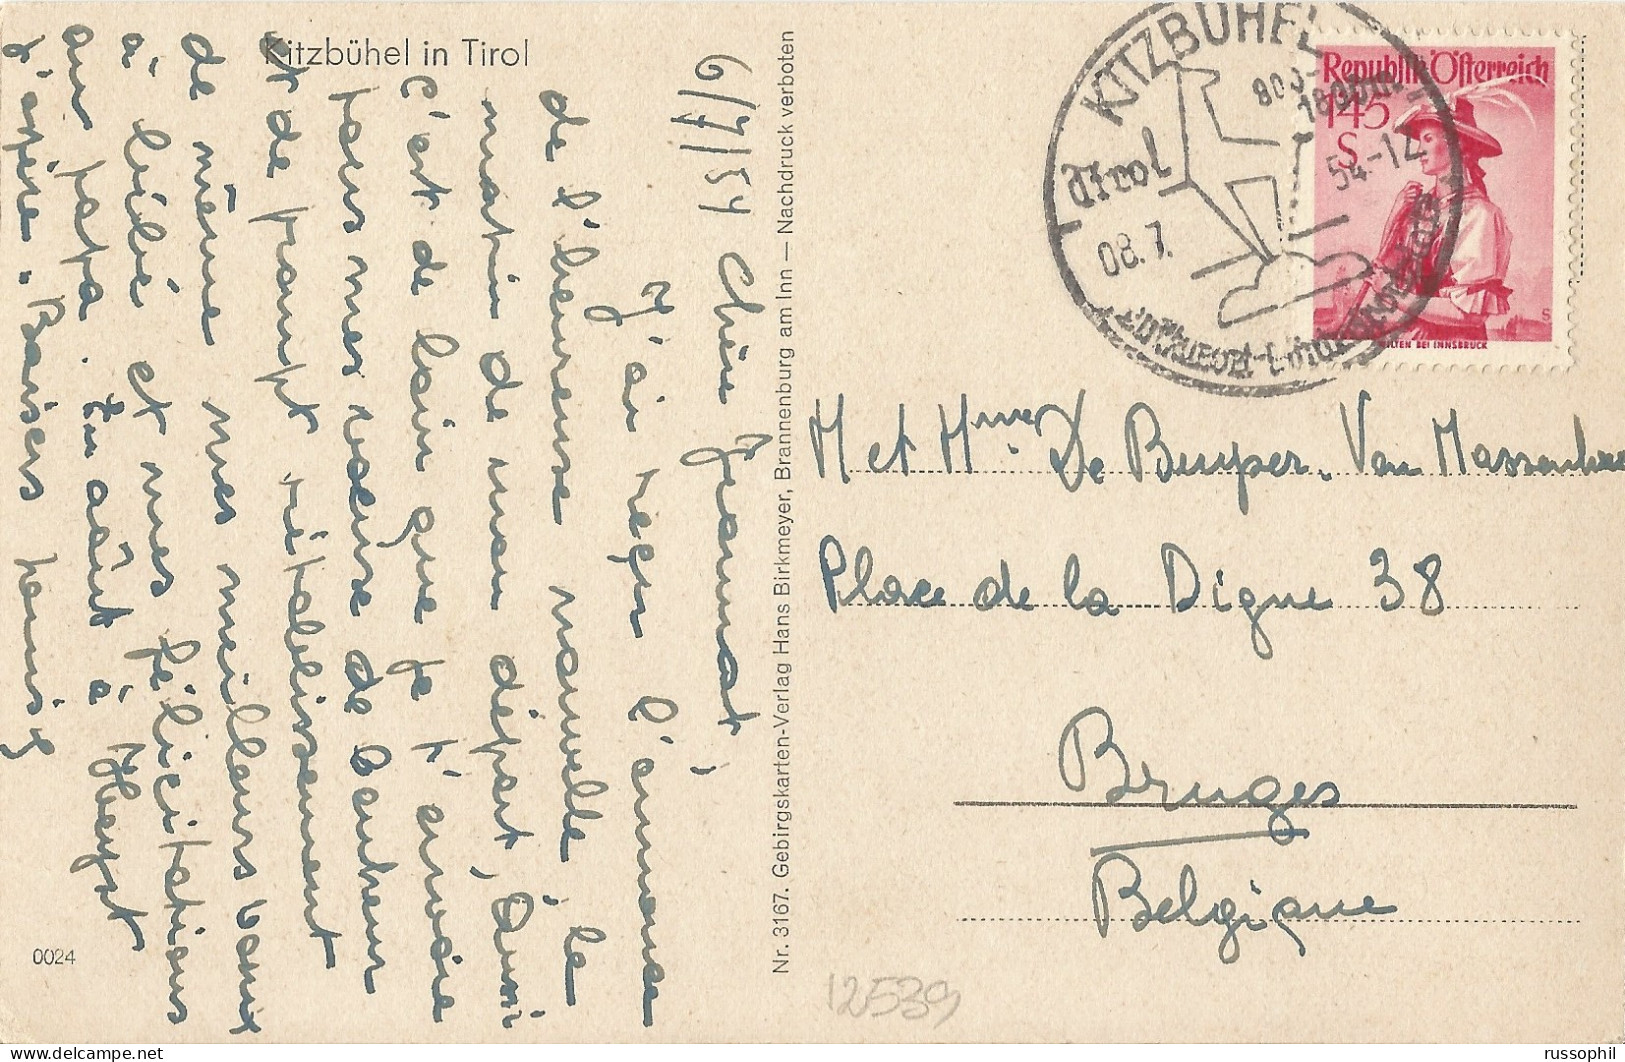 Kitzbühel in Tirol
6/7/54
Chère Jeannot,
J'ai reçu l'annonce
de l'heureuse nouvelle, le
matin de mon départ, Aussi
c'est de loin que je t'envoie
tous mes vœux de bonheur
et de prompt rétablissement
de même mes meilleurs vœux
à bébé et mes félicitations
au papa. En août à Heyst
j'espère. Baisers
0024
Nr. 3167. Gebirgskarten-Verlag Hans Birkmeyer, Brannenburg am Inn — Nachdruck verboten
KITZBÜHEL
800-
1800m
Tirol
54-12
08.7.
Republik Österreich
1'45
S
WILTEN BEI INNSBRUCK
M et Mme De Buyser. Van Massenhove
Place de la Digue 38
Bruges
Belgique
12539
delcampe.net
russophil